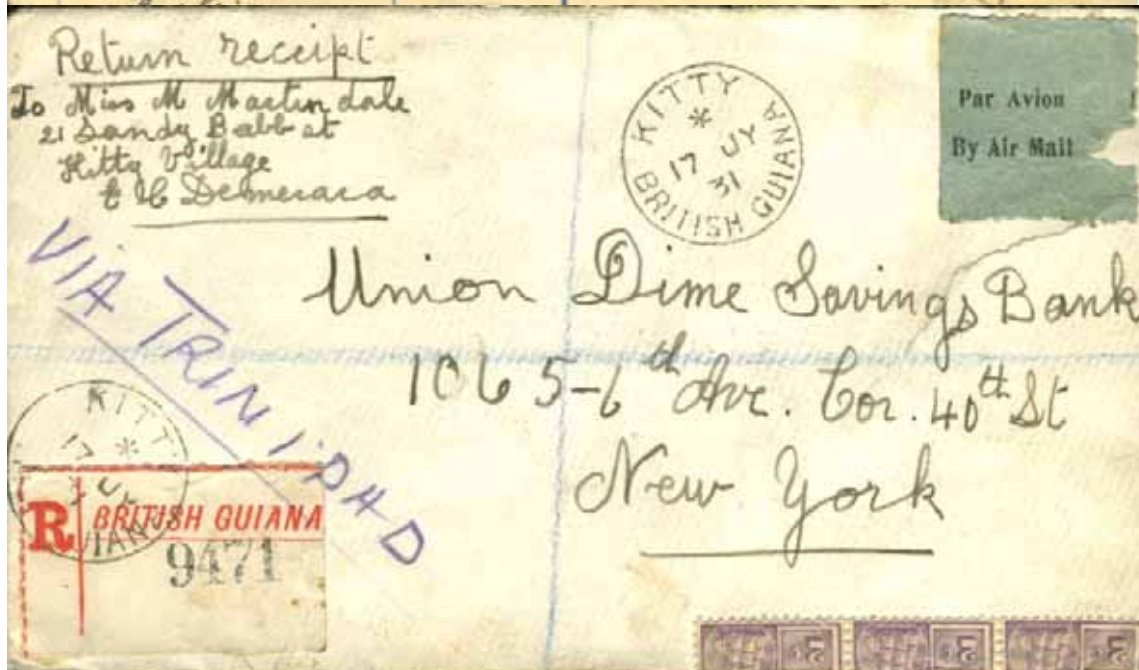 Return receipt
To Miss M Martindale
21 Sandy Babb st
Kitty Village
E C Demerara
KITTY
*
17 JY
31
BRITISH GUIANA
Par Avion
By Air Mail
VIA TRINIDAD
Union Dime Savings Bank
1065-6th Ave. Cor. 40th St
New York
KITT
*
17
R BRITISH GUIANA
9471